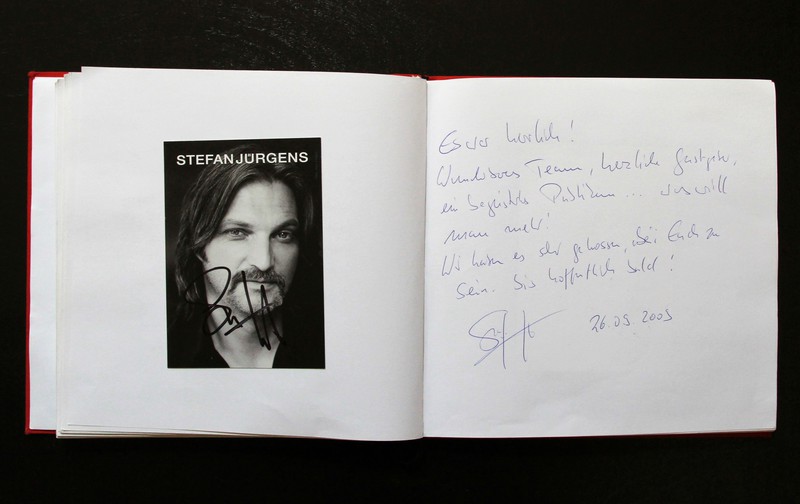 STEFAN JÜRGENS
Es war herrlich!
Wunderbares Team, herzliche Gastgeber,
ein begeistertes Publikum... was will
man mehr!
Wir haben es sehr genossen, bei Euch zu
sein. Bis hoffentlich bald!
26.09.2009